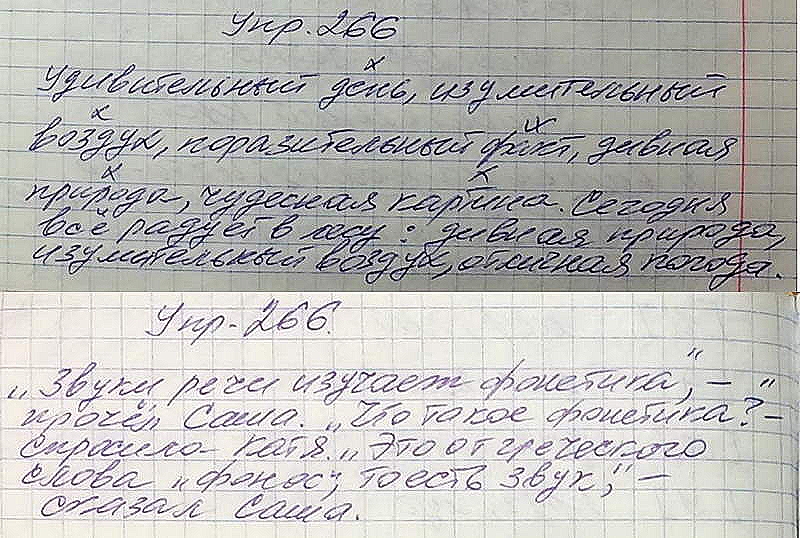 Упр. 266
Удивительный день, изумительный
воздух, поразительный факт, дивная
природа, чудесная картина. Сегодня
всё радует в лесу: дивная природа,
изумительный воздух, отличная погода.
Упр. 266.
„Звуки речи изучает фонетика", –
прочёл Саша. „Что такое фонетика?" –
спросила Катя. „Это от греческого
слова „фонос", тоесть звук," –
сказал Саша.